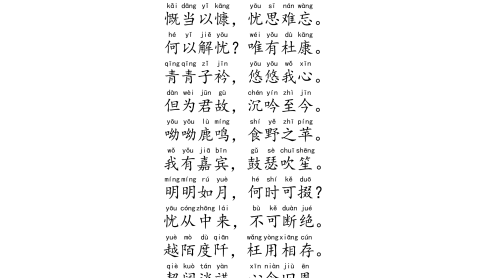 kǎi dāng yǐ kāng yōu sī nán wàng
慨当以慷，忧思难忘。
hé yǐ jiě yōu wéi yǒu dù kāng
何以解忧？唯有杜康。
qīng qīng zǐ jīn yōu yōu wǒ xīn
青青子衿，悠悠我心。
dàn wèi jūn gù chén yín zhì jīn
但为君故，沉吟至今。
yōu yōu lù míng shí yě zhī píng
呦呦鹿鸣，食野之苹。
wǒ yǒu jiā bīn gǔ sè chuī shēng
我有嘉宾，鼓瑟吹笙。
míng míng rú yuè hé shí kě duō
明明如月，何时可掇？
yōu cóng zhōng lái bù kě duàn jué
忧从中来，不可断绝。
yuè mò dù qiān wǎng yòng xiāng cún
越陌度阡，枉用相存。
qiè kuò tán yàn xīn niàn jiù ēn